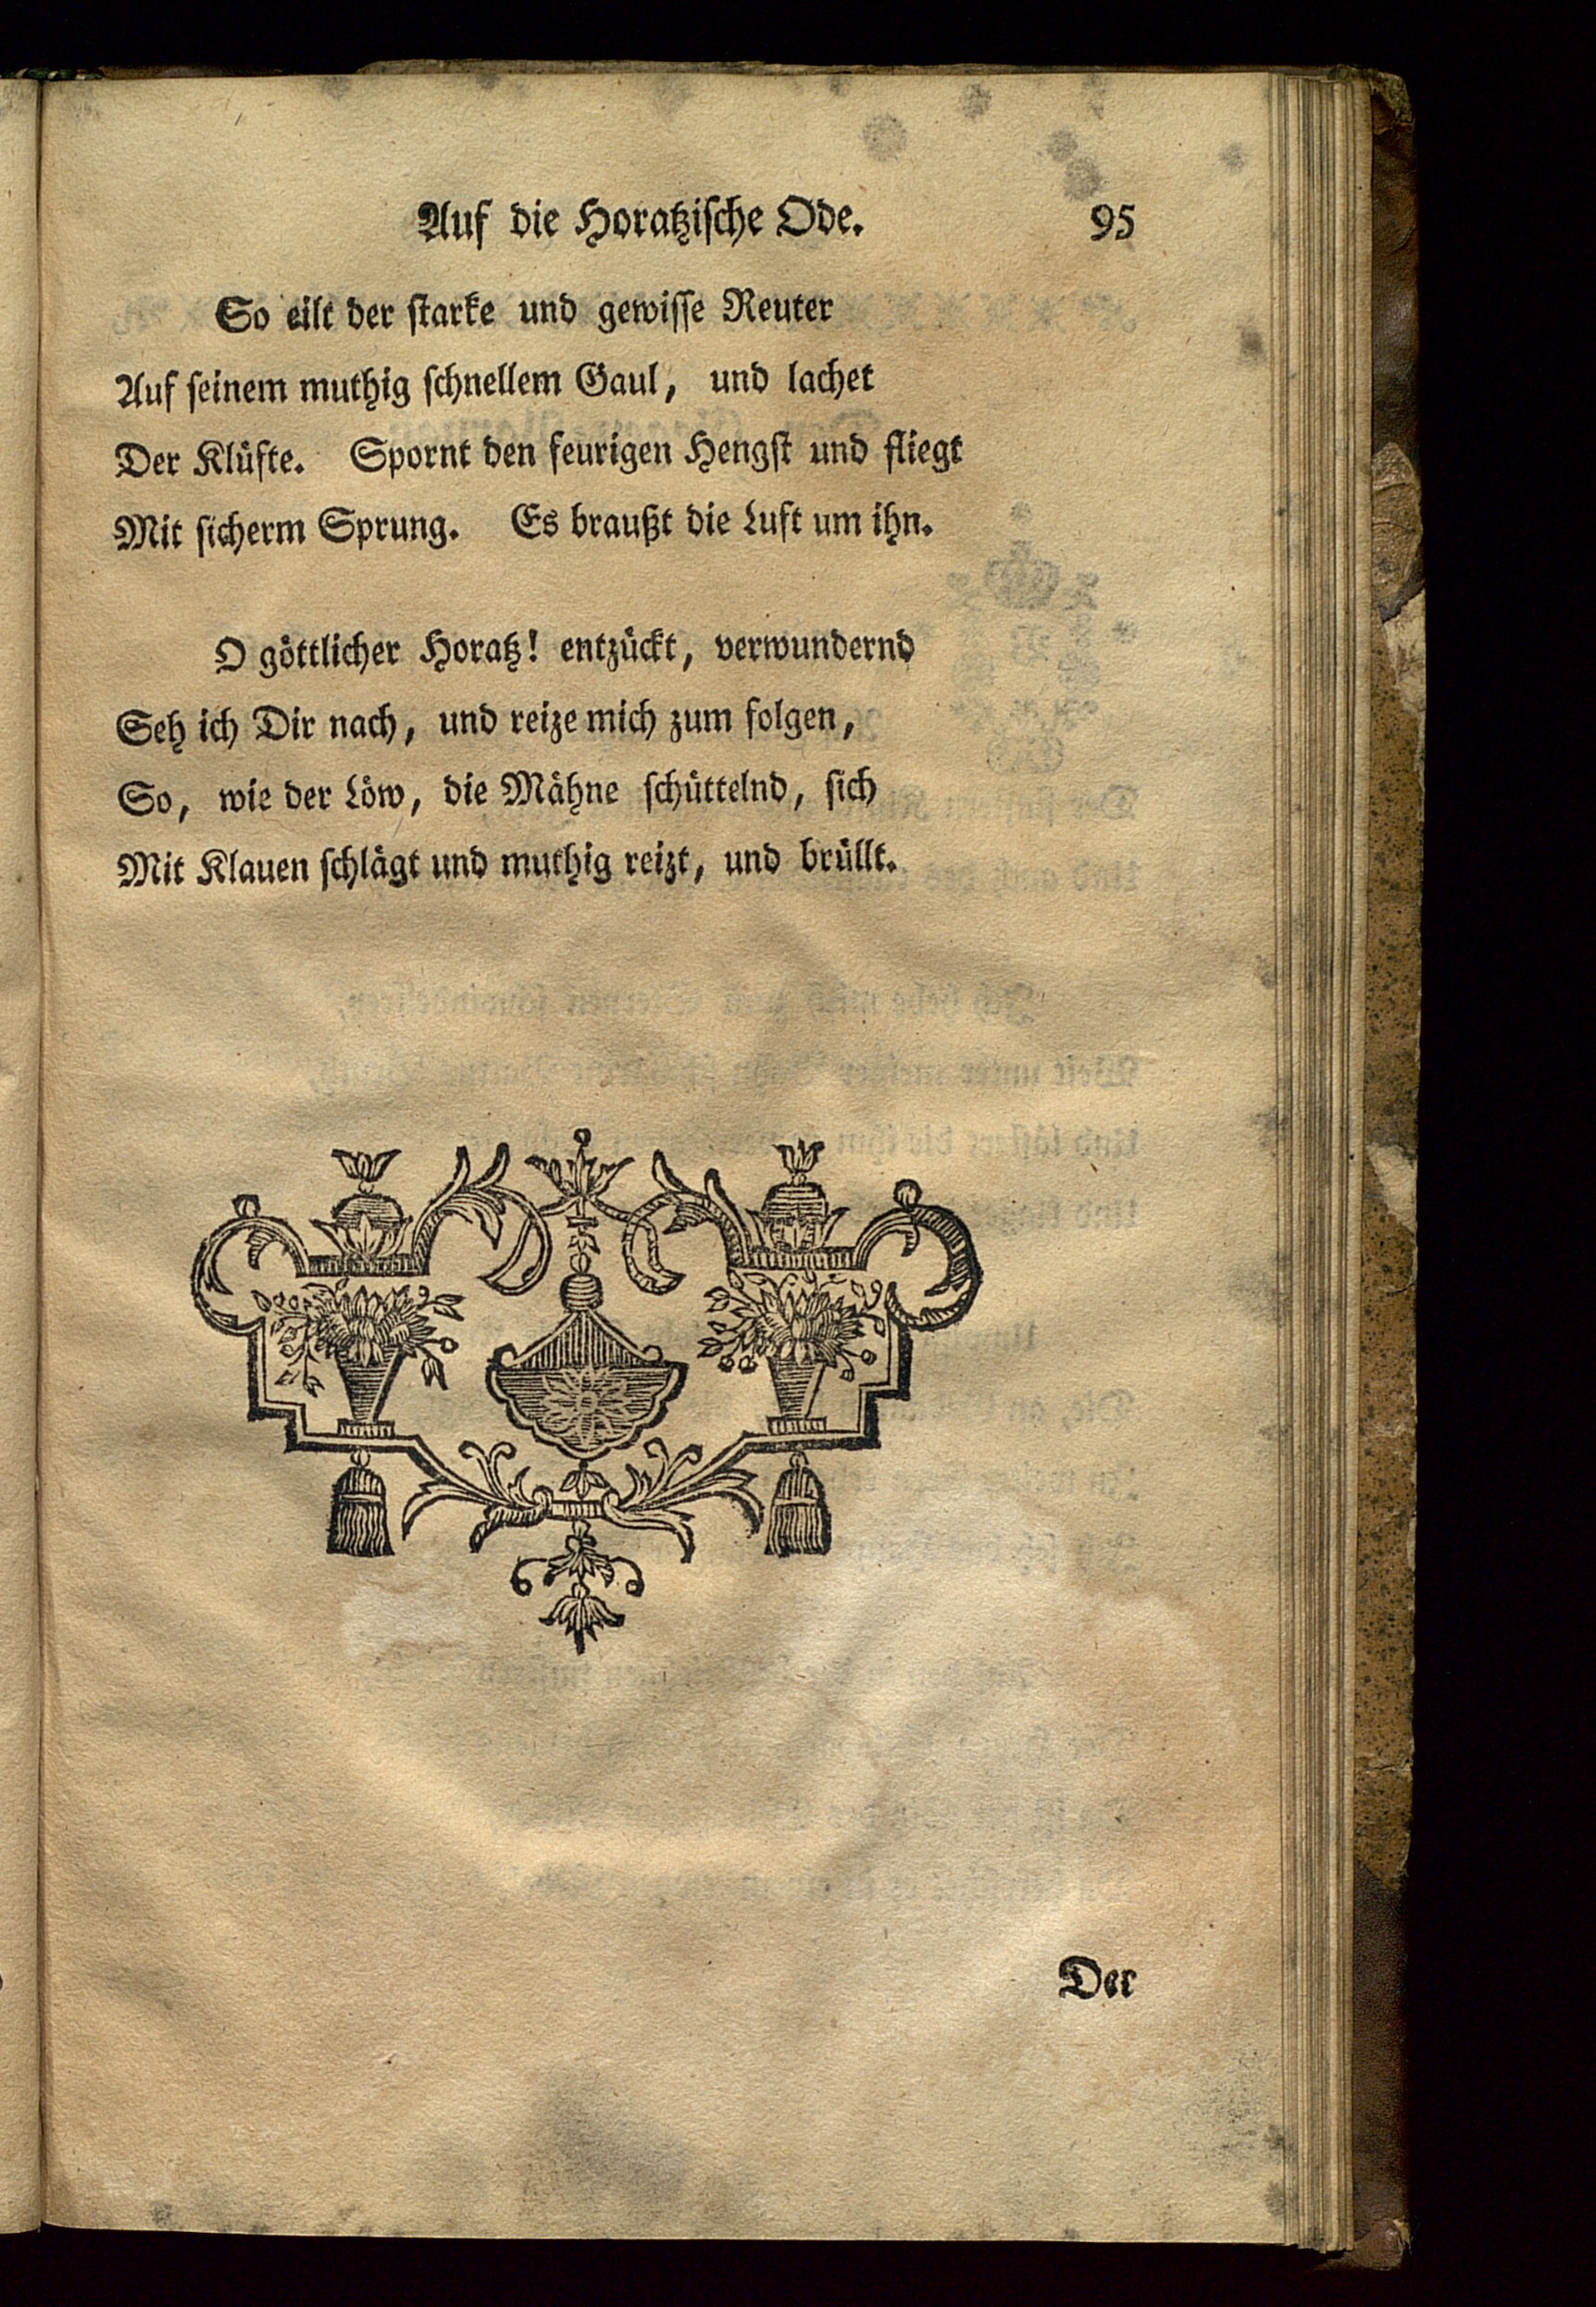 Auf die Horatzische Ode. 95
So eilt der starke und gewisse Reuter
Auf seinem muthig schnellem Gaul, und lachet
Der Klüfte. Spornt den feurigen Hengst und fliegt
Mit sicherm Sprung. Es braußt die Luft um ihn.
O göttlicher Horatz! entzückt, verwundernd
Seh ich Dir nach, und reize mich zum folgen,
So, wie der Löw, die Mähne schüttelnd, sich
Mit Klauen schlägt und muthig reizt, und brüllt.
Der